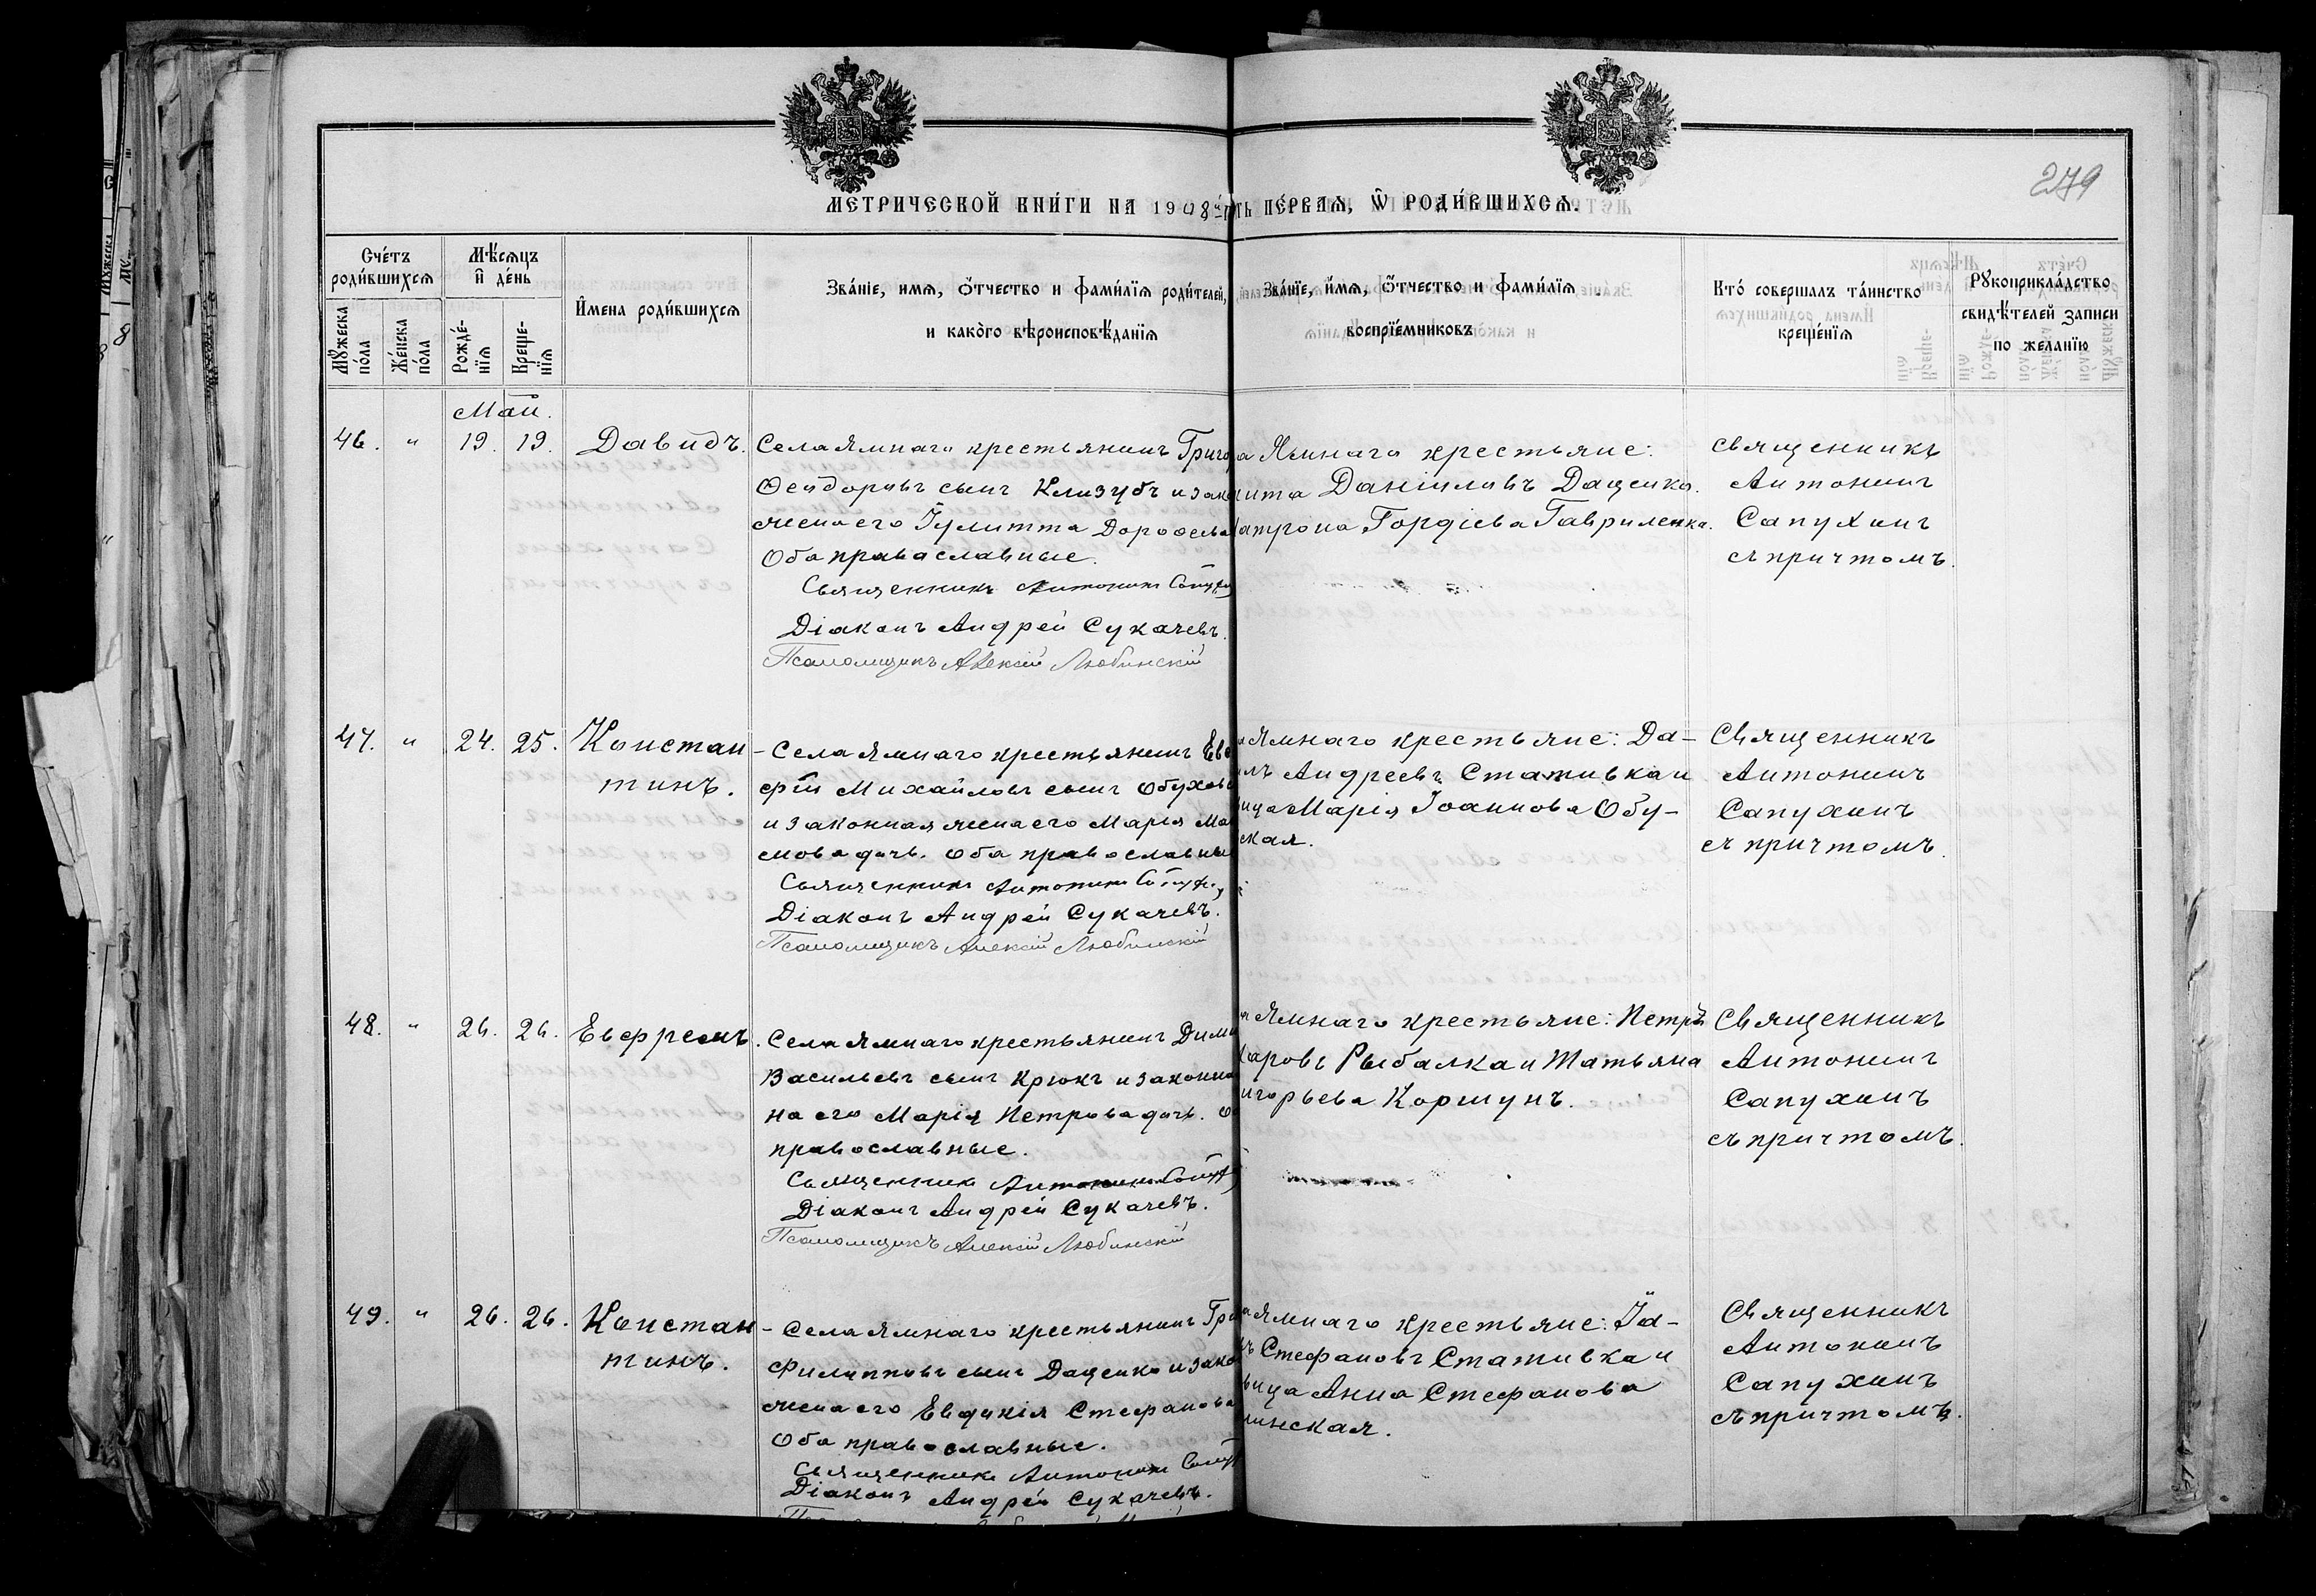 279
МЕТРИЧЕСКОЙ КНИ́ГИ НА 1908
ПЕ́РВАЯ, Ѡ РОДИ́ВШИХСЯ.
Сче́тъ
роди́вшихся
Мѣ́сяцъ
и де́нь
Мꙋ́жеска
по́ла
Же́нска
по́ла
Рожде́-
нїя
Креще-
нїя
И́мена роди́вшихся
Зва́нїе, имя, о́тчество и фами́лїя роди́телей,
и како́го вѣроисповѣ́данїя
Зва́нїе, и́мя, о́тчество и фами́лїя
воспрїе́мниковъ
Кто́ совершалъ та́инство
креще́нїя
Рꙋкоприкла́дство
свидѣ́телей записи
по желанїю
Маи.
46. " 19. 19. Давидъ.
Села Ямнаго крестьянинъ Григо
Ѳеодоровъ сынъ Клизубъ и зако
жена его Іулитта Дороѳева
Оба православные.
Священникъ Антонинъ
Діаконъ Андрей Сукачевъ.
Псаломщикъ Алексій Любинскій
а Ямнаго крестьяне:
ита Даніиловъ Даценко.
атрона Гордіева Гавриленко.
Священникъ
Антонинъ
Сапухинъ
съ причтомъ.
47. " 24. 25. Констан-
тинъ.
Села Ямнаго крестьянинъ Евс
фій Михайловъ сынъ Обухов
и законная жена его Марія Ма
мова дочь. Оба православны
Священникъ Антонинъ
Діаконъ Андрей Сукачевъ.
Псаломщикъ Алексій Любинскій
Ямнаго крестьяне: Да-
лъ Андреевъ Стативка и
ица Марія Іоаннова Обу-
ская.
Священникъ
Антонинъ
Сапухинъ
съ причтомъ.
48. " 26. 26. Евфремъ.
Села Ямнаго крестьянинъ Дими
Васильевъ сынъ Крюкъ и законна
на его Марія Петрова дочь. О
православные.
Священникъ Антонинъ
Діаконъ Андрей Сукачевъ.
Псаломщикъ Алексій Любинскій
Ямнаго крестьяне: Петръ
харовъ Рыбалка и Татьяна
игорьева Коршунъ.
Священникъ
Антонинъ
Сапухинъ
съ причтомъ.
49. " 26. 26. Констан-
тинъ.
Села Ямнаго крестьянинъ Гри
Филипповъ сынъ Даценко и зако
жена его Евдокія Стефанова
Оба православные.
Священникъ Антонинъ
Діаконъ Андрей Сукачевъ.
а Ямнаго крестьяне: Іа-
въ Стефановъ Стативка и
вица Анна Стефанова
инская.
Священникъ
Антонинъ
Сапухинъ
съ причтомъ.